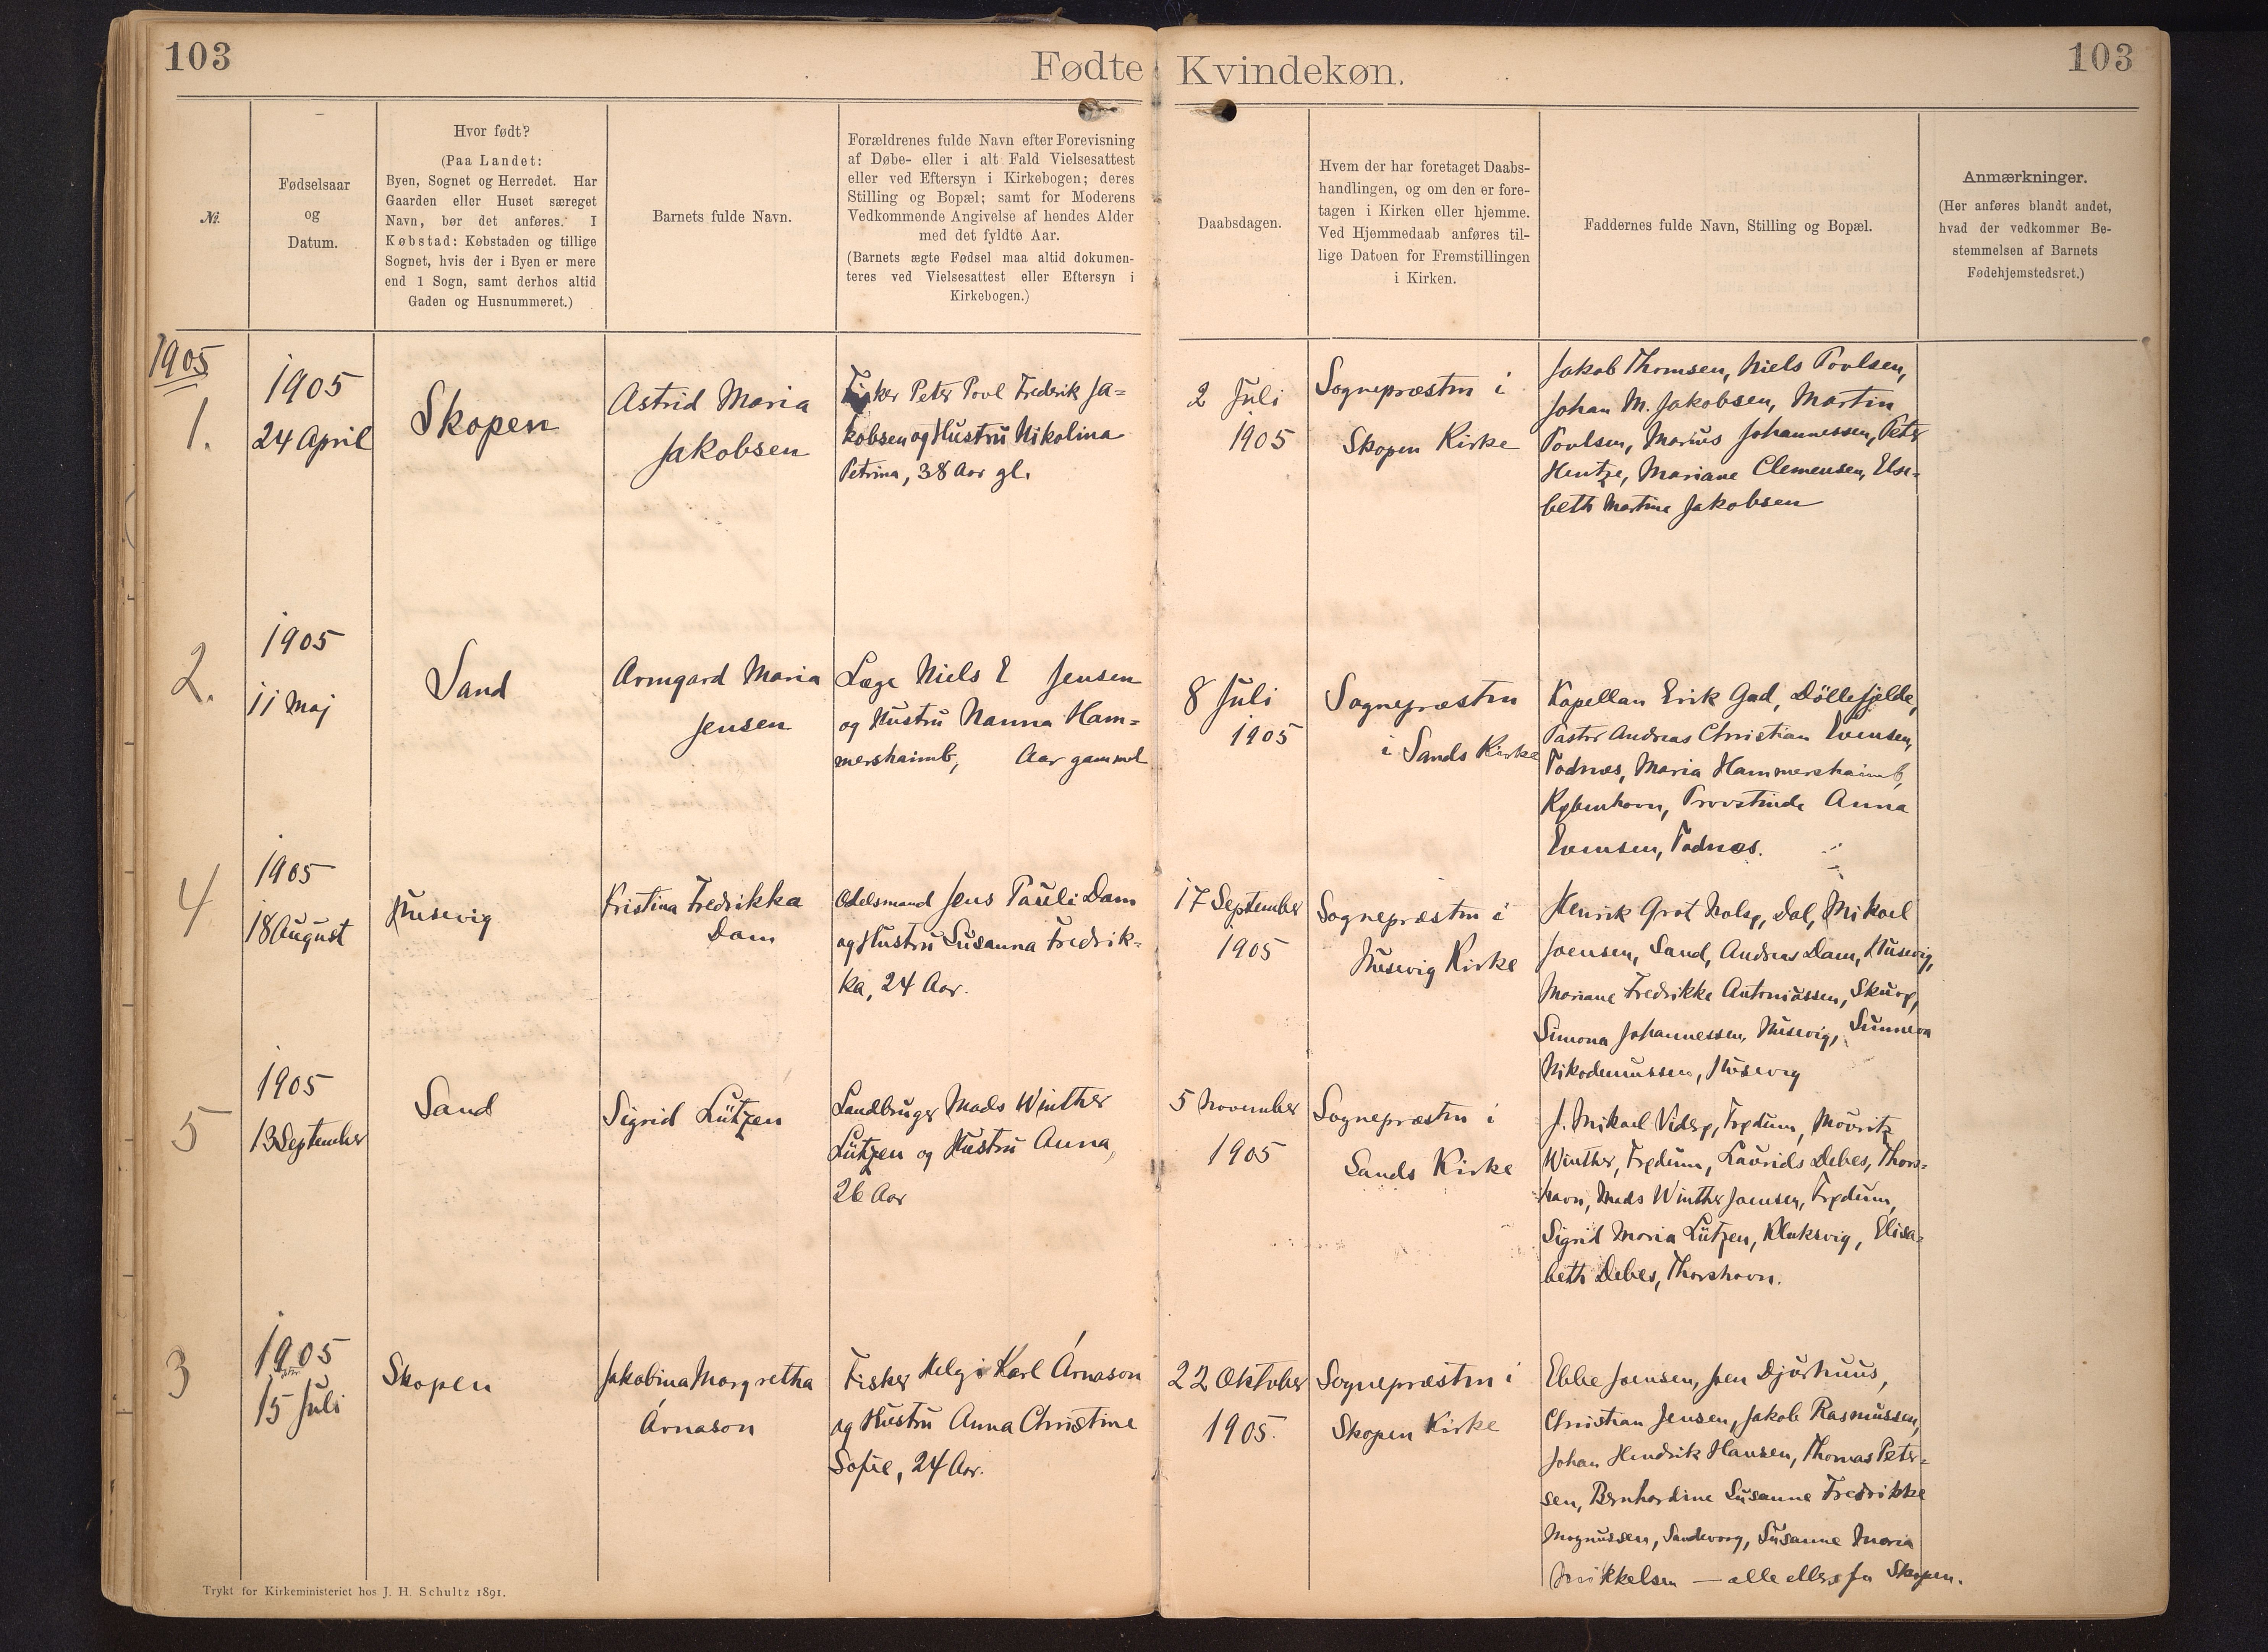 103
Fødte Kvindekøn.
103
№.
Fødselsaar
og
Datum.
Hvor født?
(Paa Landet:
Byen, Sognet og Herredet. Har
Gaarden eller Huset særeget
Navn, bør det anføres. I
Købstad: Købstaden og tillige
Sognet, hvis der i Byen er mere
end 1 Sogn, samt derhos altid
Gaden og Husnummeret.)
Barnets fulde Navn.
Forældrenes fulde Navn efter Forevisning
af Døbe- eller i alt Fald Vielsesattest
eller ved Eftersyn i Kirkebogen; deres
Stilling og Bopæl; samt for Moderens
Vedkommende Angivelse af hendes Alder
med det fyldte Aar.
(Barnets ægte Fødsel maa altid dokumen-
teres ved Vielsesattest eller Eftersyn i
Kirkebogen.)
Daabsdagen.
Hvem der har foretaget Daabs-
handlingen, og om den er fore-
tagen i Kirken eller hjemme.
Ved Hjemmedaab anføres til-
lige Datoen for Fremstillingen
i Kirken.
Faddernes fulde Navn, Stilling og Bopæl.
Anmærkninger.
(Her anføres blandt andet,
hvad der vedkommer Be-
stemmelsen af Barnets
Fødehjemstedsret.)
1905
1.
1905
24 April
Skopen
Astrid Maria
Jakobsen
Fisker Peter Povl Fredrik Ja-
kobsen og Hustru Nikolina
Petrina, 38 Aar gl.
2 Juli
1905
Sognepræsten i
Skopen Kirke
Jakob Thomsen, Niels Poulsen,
Johan M. Jakobsen, Martin
Poulsen, Marius Johannessen, Peter
Hentze, Mariane Clemensen, Else-
beth Martina Jakobsen
2.
1905
11 Maj
Sand
Armgard Maria
Jensen
Læge Niels E Jensen
og Hustru Nanna Ham-
mershaimb, Aar gammel
8 Juli
1905
Sognepræsten
i Sands Kirke
Kapellan Erik Gad, Döllefjelde,
Pastor Andreas Christian Evensen,
Todnæs, Maria Hammershaimb,
København, Provstinde Anna
Evensen, Todnæs.
4
1905
18 August
Husevig
Kristina Fredrikka
Dam
Odelsmand Jens Pauli Dam
og Hustru Susanna Fredrik-
ka, 24 Aar.
17 September
1905
Sognepræsten i
Husevig Kirke
Henrik Grot Nolsø, Dal, Mikael
Joensen, Sand, Andreas Dam, Husevig,
Mariane Fredrikke Antoniussen,
Simona Johannessen, Husevig, Sunneva
Nikodemussen, Husevig
5
1905
13 September
Sand
Sigrid Lützen
Landbruger Mads Winther
Lützen og Hustru Anna,
26 Aar
5 November
1905
Sognepræsten i
Sands Kirke
J. Mikael Viderø, Frødum, Mouritz
Winther, Frødum, Laurids Debes, Thors-
havn, Mads Winther Joensen, Frødum,
Sigrid Maria Lützen, Klaksvig, Elisa-
beth Debes, Thorshavn.
3
1905
15 Juli
Skopen
Jakobina Margretha
Árnason
Fisker Helgi Karl Árnason
og Hustru Anna Christine
Sofie, 24 Aar.
22 Oktober
1905.
Sognepræsten i
Skopen Kirke
Ebbe Joensen, Joen Djurhuus,
Christian Jensen, Jakob Rasmussen,
Johan Hendrik Hansen, Thomas Peter-
sen, Bernhardine Susanne Fredrikke
Magnussen, Sandevaag, Susanne Maria
Mikkelsen — alle ellers fra Skopen.
Trykt for Kirkeministeriet hos J. H. Schultz 1891.